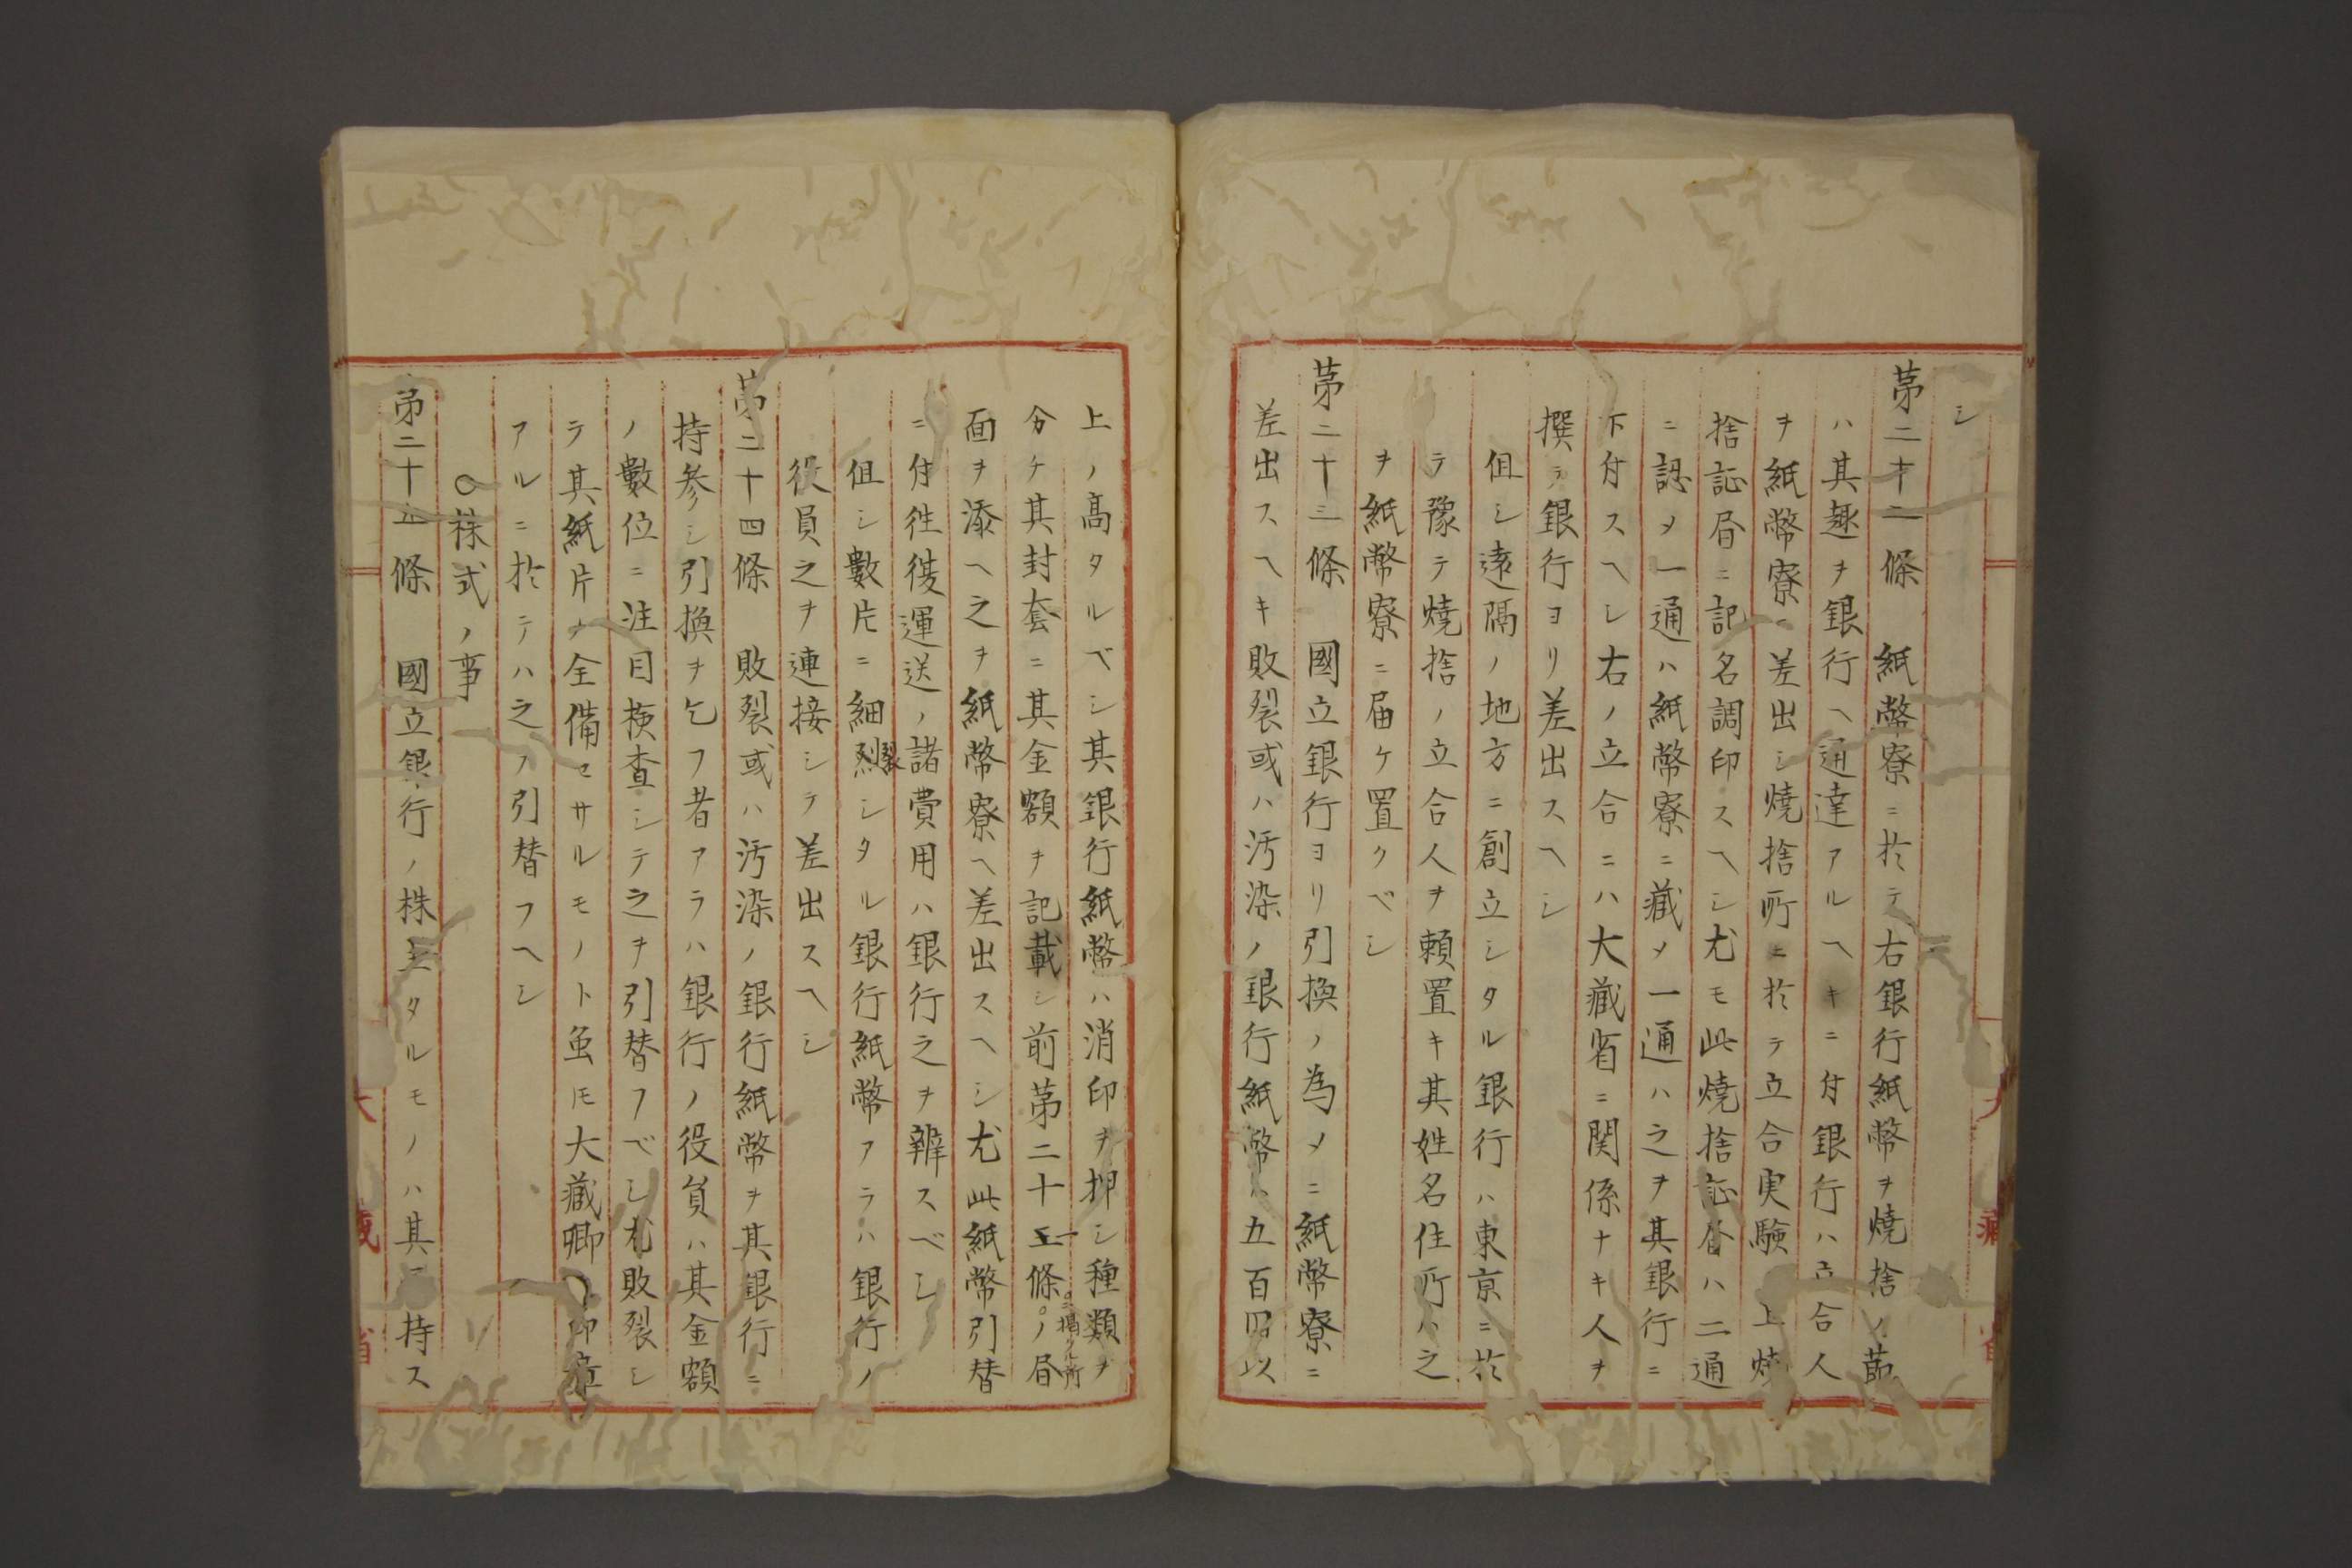 シ
第二十二條　紙幣寮ニ於テ右銀行紙幣ヲ燒捨ノ節
ハ其趣ヲ銀行ヘ通達アルヘキニ付銀行ハ立合人
ヲ紙幣寮ヘ差出シ燒捨所ニ於テ立合実驗ノ上燒
捨証書ニ記名調印スヘシ尤モ此燒捨証書ハ二通
ニ認メ一通ハ紙幣寮ニ藏メ一通ハ之ヲ其銀行ニ
下付スヘシ右ノ立合ニハ大藏省ニ関係ナキ人ヲ
撰ラ銀行ヨリ差出スヘシ
但シ遠隔ノ地方ニ創立シタル銀行ハ東京ニ於
テ豫テ燒捨ノ立合人ヲ頼置キ其姓名住所ハ之
ヲ紙幣寮ニ届ケ置クベシ
第二十三條　國立銀行ヨリ引換ノ為メニ紙幣寮ニ
差出スヘキ敗裂或ハ汚染ノ銀行紙幣ハ五百円以
上ノ高タルベシ其銀行紙幣ハ消印ヲ押シ種類ヲ
分ケ其封套ニ其金額ヲ記載シ前第二十一條ニ掲クル所ノ書
面ヲ添ヘ之ヲ紙幣寮ヘ差出スヘシ尤此紙幣引替
ニ付徃復運送ノ諸費用ハ銀行之ヲ辨スベシ
但シ數片ニ細裂シタル銀行紙幣アラハ銀行ノ
役員之ヲ連接シテ差出スヘシ
第二十四條　敗裂或ハ汚染ノ銀行紙幣ヲ其銀行ニ
持参シ引換ヲ乞フ者アラハ銀行ノ役員ハ其金額
ノ數位ニ注目檢査シテ之ヲ引替フベシ尤敗裂シ
テ其紙片ノ全備セサルモノト虽モ大藏卿ノ印章
アルニ於テハ之ヲ引替フヘシ
○株式ノ事
第二十五條　國立銀行ノ株主タルモノハ其所持ス
大藏省